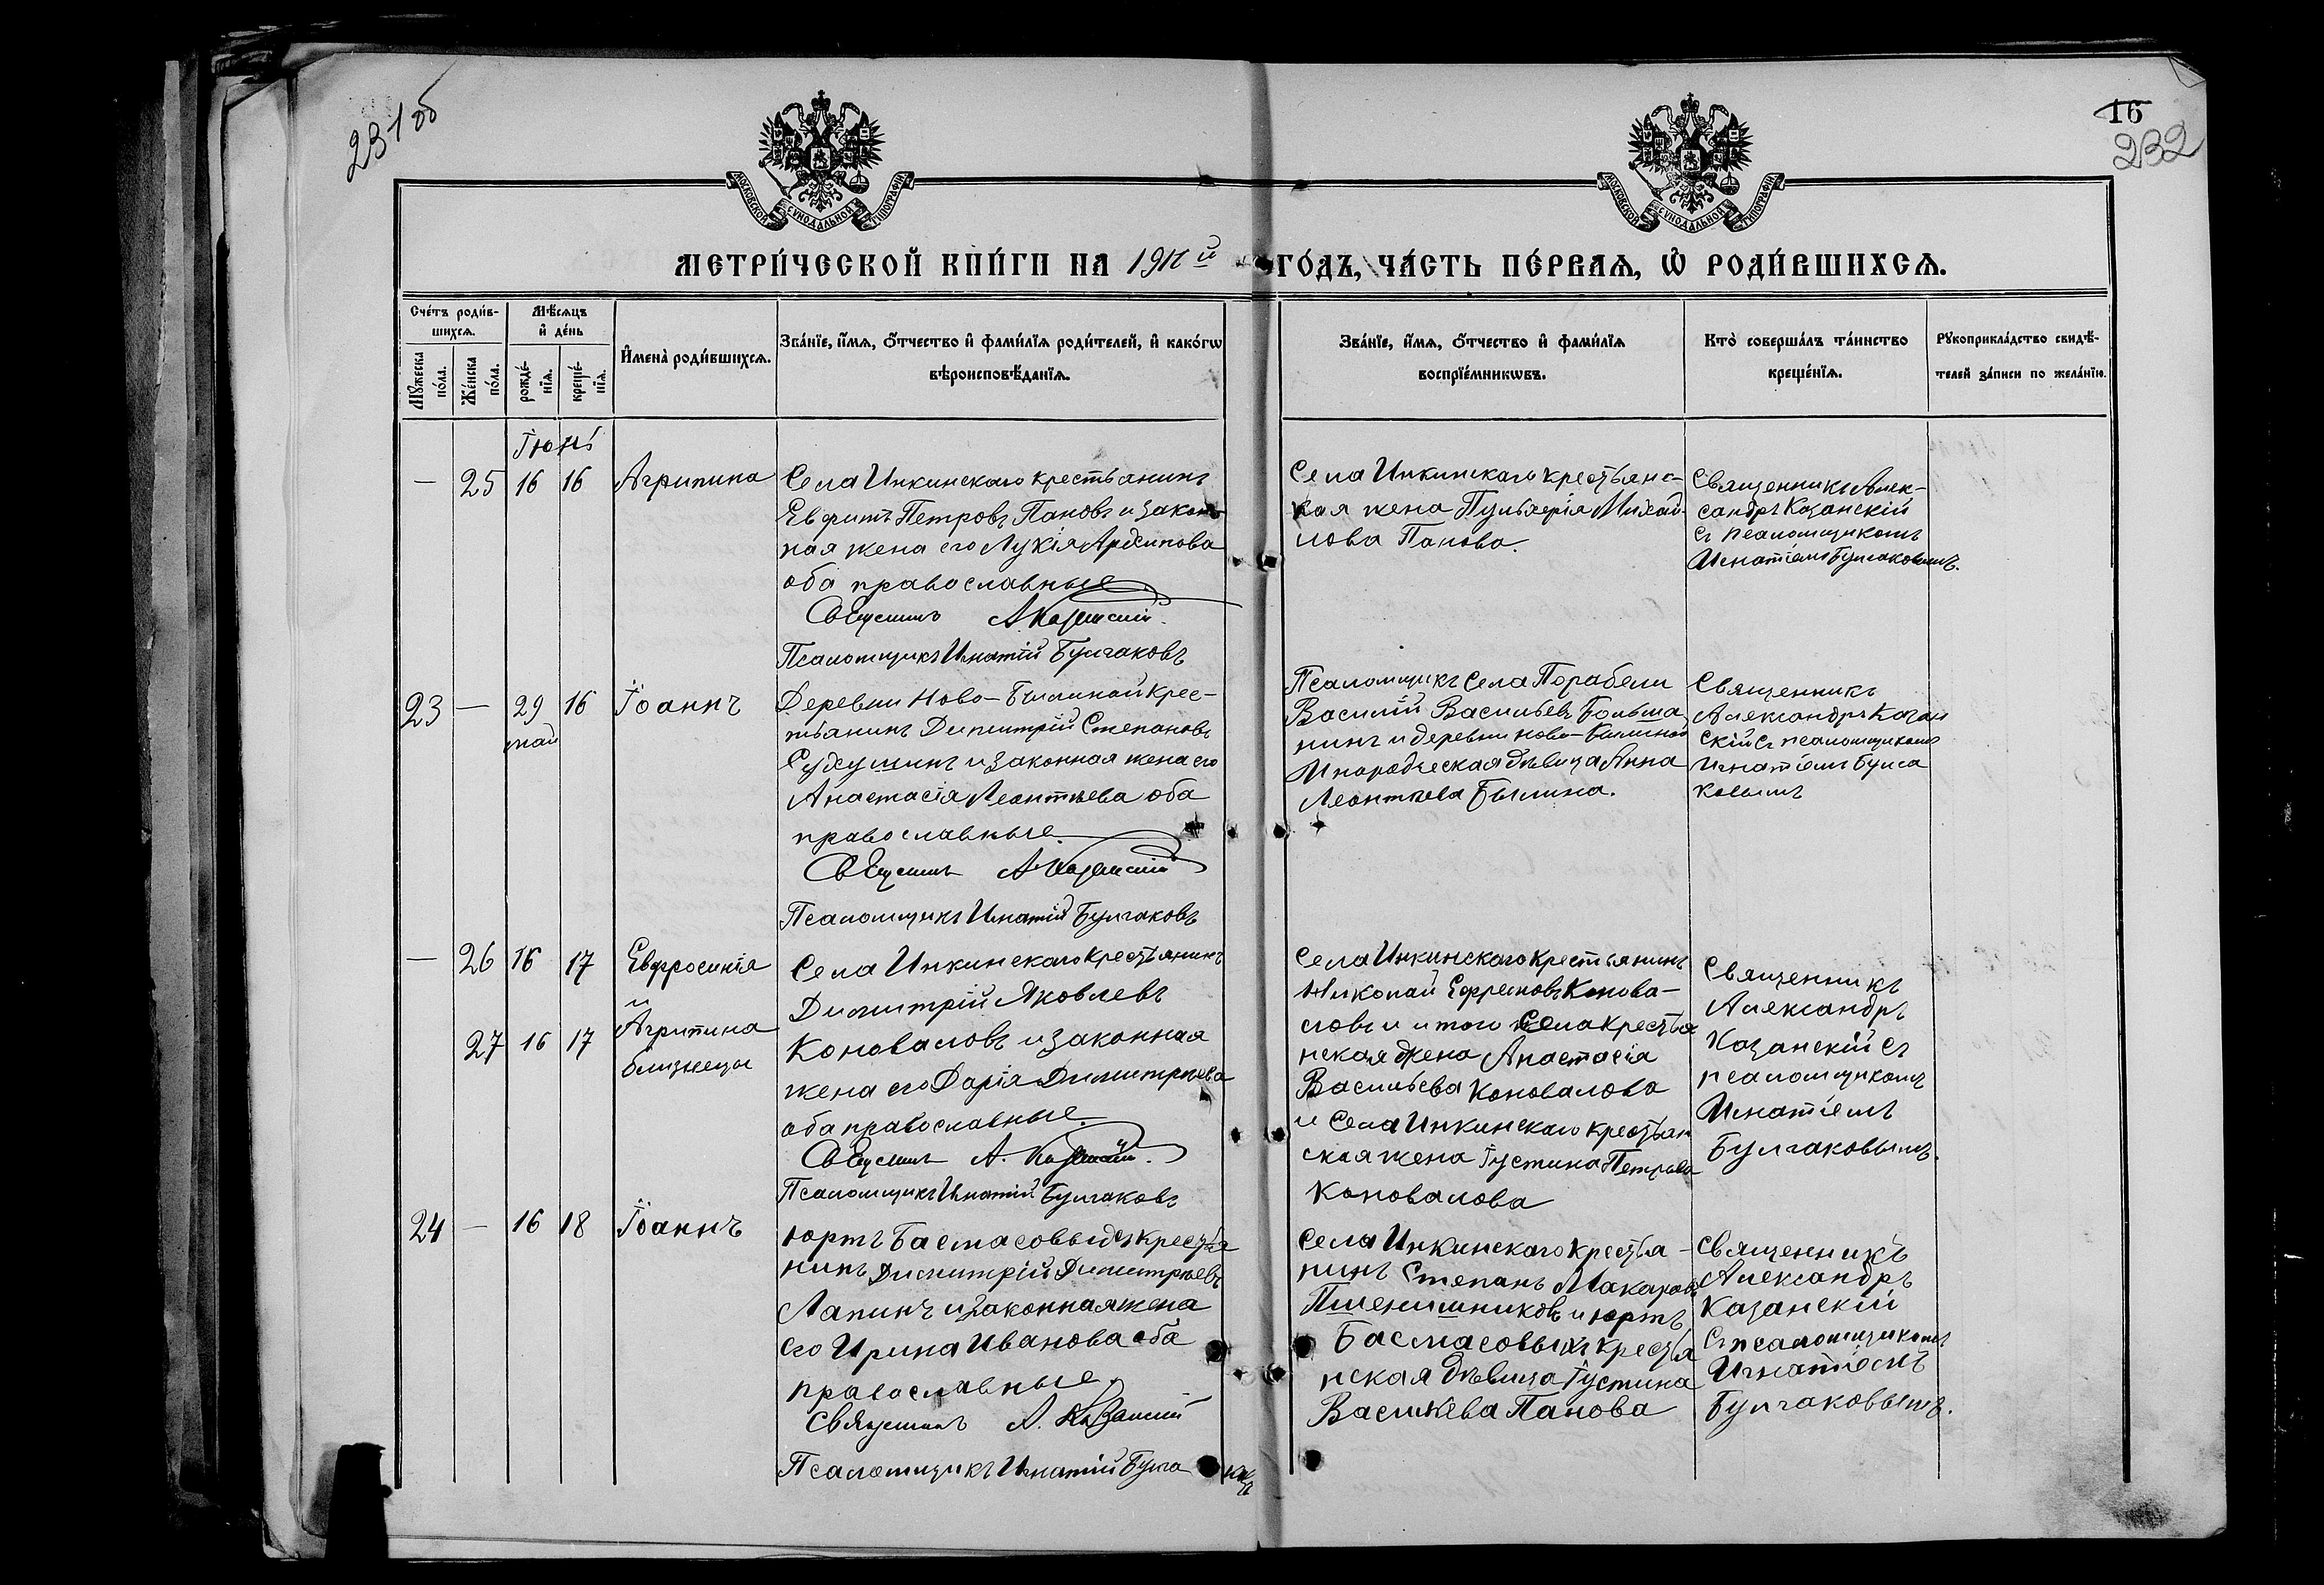 231 об
16
232
МОСКОВСКОЙ СѴНОДАЛЬНОЙ ТИПОГРАФІИ
МОСКОВСКОЙ СѴНОДАЛЬНОЙ ТИПОГРАФІИ
МЕТРИ́ЧЕСКОЙ КНИ́ГИ НА 1912й ГО́ДЪ, ЧА́СТЬ ПЕ́РВАѦ, Ѡ҆ РОДИ́ВШИХСѦ.
Сче́тъ роди́в-
шихсѧ.
Мѣ́сѧцъ
и҆ де́нь
Мꙋ́жеска
по́ла.
Же́нска
по́ла.
рожде́-
нїѧ.
креще́-
нїѧ.
И҆мена̀ роди́вшихсѧ.
Зва́нїе, и҆́мѧ, ѻ҆́тчество и҆ фами́лїѧ роди́телей, и҆ како́гѡ
вѣроисповѣ́данїѧ.
Зва́нїе, и҆́мѧ, ѻ҆́тчество и҆ фами́лїѧ
воспрїе́мникѡвъ.
Кто̀ соверша́лъ та́инство
креще́нїѧ.
Рꙋкоприкла́дство свидѣ́-
телей за́писи по жела́нїю.
Іюнь
— 25 16 16 Агрипина
Села Инкинскаго крестьянинъ
Евфимъ Петровъ Пановъ и закон-
ная жена его Лукія Архипова
оба православные
Священникъ А Казанскій
Псаломщикъ Игнатій Булгаковъ
Села Инкинскаго крестьянс-
кая жена Пульхерія Михай-
лова Панова.
Священникъ Алек-
сандръ Казанскій
съ псаломщикомъ
Игнатіемъ Булгаковымъ.
23 — 29 16 Іоаннъ
май
Деревни Ново-Былиной крес-
тьянинъ Димитрій Степановъ
Сухушинъ и законная жена его
Анастасія Леонтьева оба
православные
Священникъ А Казанскій
Псаломщикъ Игнатій Булгаковъ
Псаломщикъ села Парабели
Василій Васильевъ Больша
нинъ и деревни Ново-Былиной
Инородческая дѣвица Анна
Леонтьева Былина.
Священникъ
Александръ Казан
скій съ псаломщикомъ
Игнатіемъ Булга
ковымъ
— 26 16 17 Евфросинія
и
27 16 17 Агрипина
близнецы
Села Инкинскаго крестьянинъ
Димитрій Яковлевъ
Коноваловъ и законная
жена его Дарія Димитріева
оба православные
Священникъ А. Казанскій.
Псаломщикъ Игнатій Булгаковъ
Села Инкинскаго крестьянинъ
Николай Ефремовъ Конова-
ловъ и того села крестья
нская жена Анастасія
Васильева Коновалова
и Села Инкинскаго крестьян
ская жена Іустина Петрова
Коновалова
Священникъ
Александръ
Казанскій съ
псаломщикомъ
Игнатіемъ
Булгаковымъ.
24 — 16 18 Іоаннъ
Юртъ Басмасовыхъ крестья
нинъ Димитрій Димитріевъ
Лапинъ и законная жена
его Ирина Иванова оба
православные.
Священникъ А. Казанскій
Псаломщикъ Игнатій Булгаковъ
Села Инкинскаго крестья-
нинъ Степанъ Макаровъ
Пшенишниковъ и юртъ
Басмасовыхъ крестья
нская дѣвица Іустина
Василіева Панова
Священникъ
Александръ
Казанскій
съ псаломщикомъ
Игнатіемъ
Булгаковымъ.